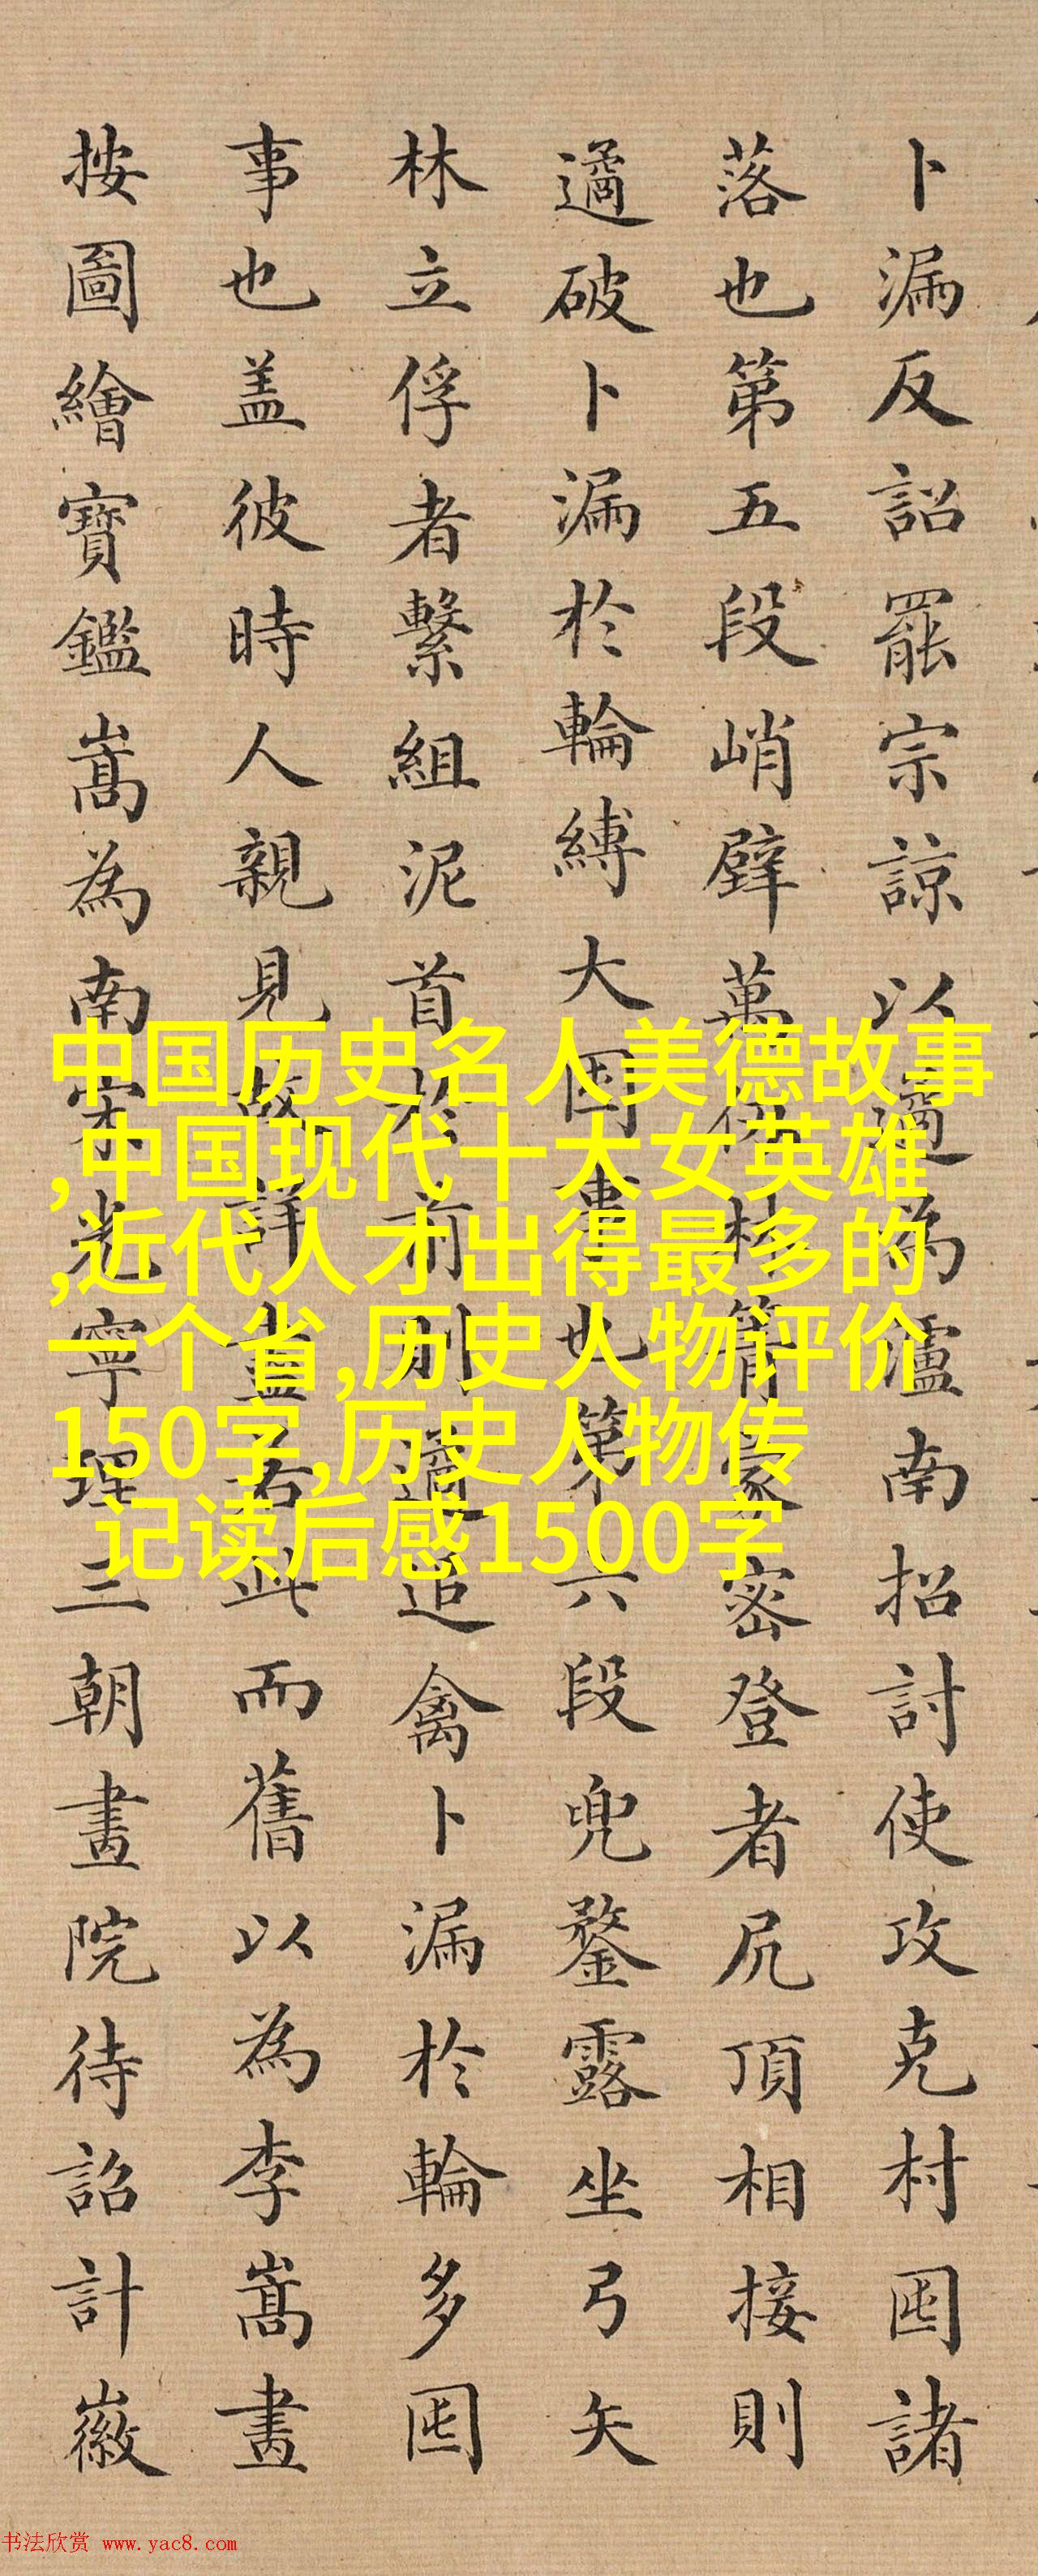 卜漏反詔罷宗諒以遹為瀘南招討使攻克村囤諸
落也第五段峭壁萬仞林箐蒙密登者尻頂相接則
遹破卜漏於輪縛大囤事也第六段兜鍪露坐弓矢
林立俘者繫組泥首於前則遹追禽卜漏於輪多囤
事也盖彼時人親見故詳盡若此而舊以為李嵩畫
按圖繪寶鑑嵩為南宋光寧理三朝畫院待詔計徽
中国历史名人美德故事
,中国现代十大女英雄
,近代人才出得最多的
一个省,历史人物评价
150字,历史人物传
记读后感1500字
书法欣赏 www.yac8.com